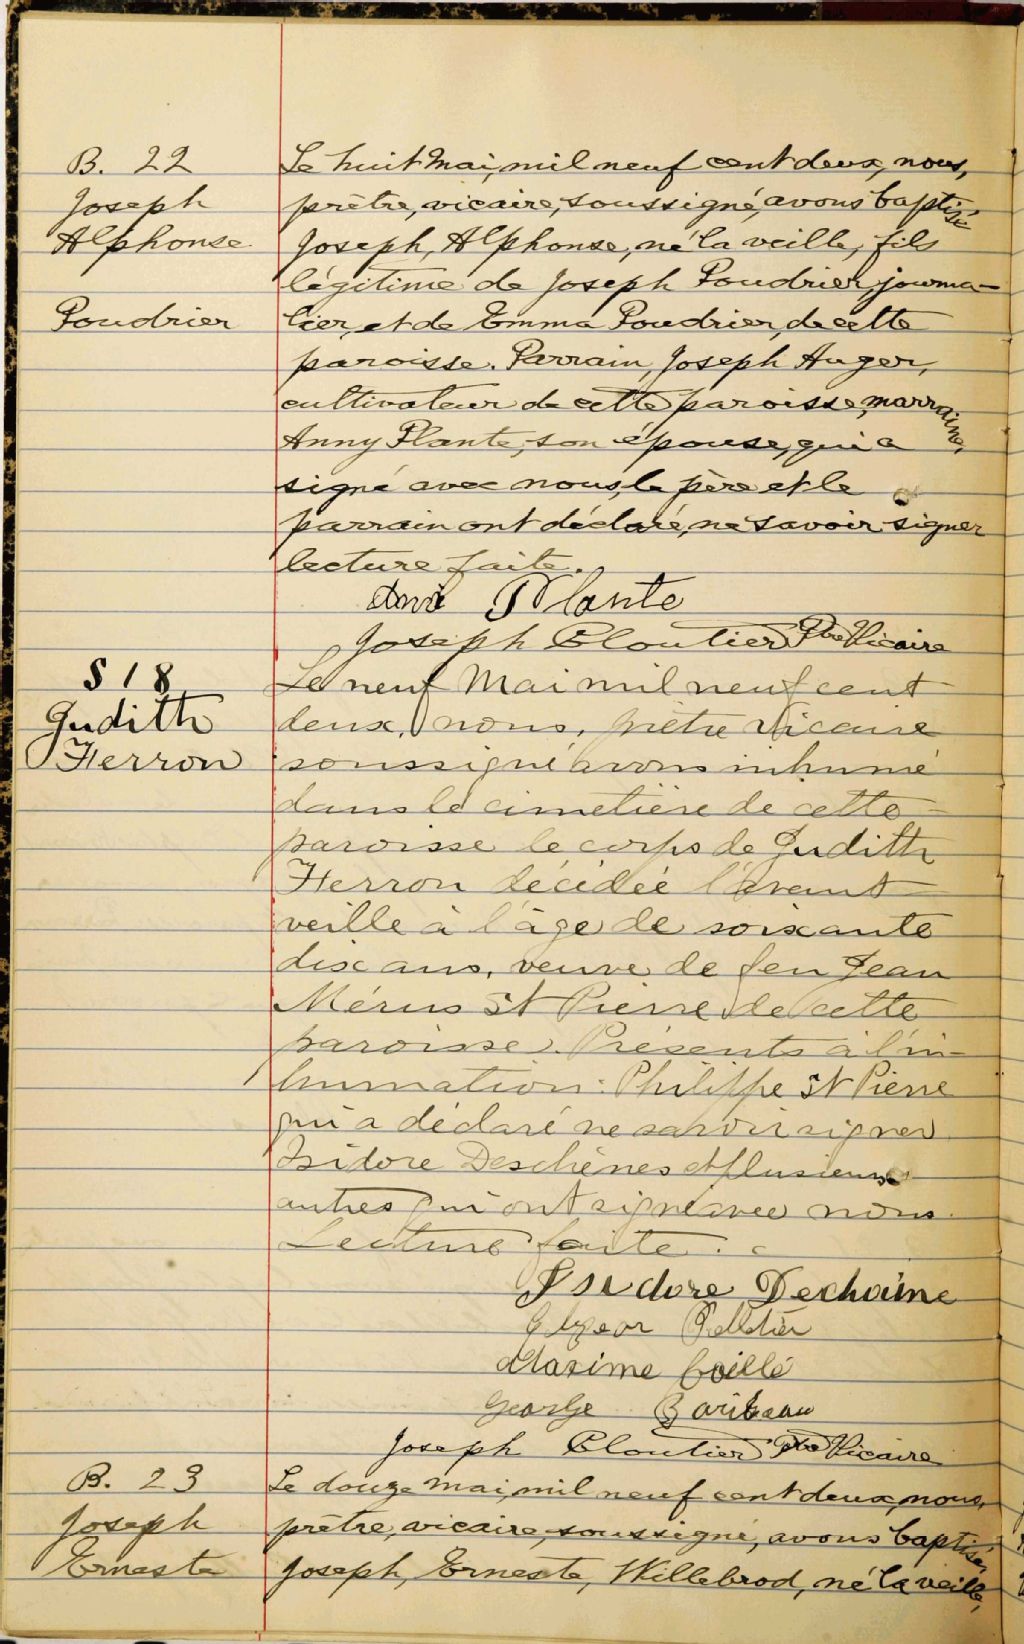 B. 22
Joseph
Alphonse
Poudrier
Le huit Mai, mil neuf cent deux, nous,
prêtre, vicaire, soussigné, avons baptisé
Joseph, Alphonse, né la veille, fils
légitime de Joseph Poudrier, journa-
lier, et de Emma Poudrier, de cette
paroisse. Parrain, Joseph Auger,
cultivateur de cette paroisse, marraine,
Anny Plante, son épouse, qui a
signé avec nous, le père et le
parrain ont déclaré, ne savoir signer
lecture faite.
Plante
Joseph Cloutier Ptre Vicaire
S 18
Judith
Herron
Le neuf Mai mil neuf cent
deux, nous, prêtre Vicaire
soussigné avons inhumé
dans le cimetière de cette
paroisse le corps de Judith
Herron décédée l'avant
veille à l'âge de soixante
dix ans, veuve de feu Jean
Mérus St Pierre de cette
paroisse. Présents à l'in-
humation: Philippe St Pierre
qui a déclaré ne savoir signer
Isidore Deschênes et plusieurs
autres qui ont signé avec nous.
Lecture faite.
Isidore Dechaine
Elzear Pelletier
Maxime Goillé
George Baribeau
Joseph Cloutier Ptre Vicaire
B. 23
Joseph
Erneste
Le douze mai, mil neuf cent deux, nous,
prêtre, vicaire, soussigné, avons baptisé,
Joseph, Erneste, Willebrod, né la veille,